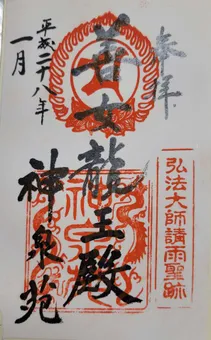 奉拝
善女龍王殿
神泉苑
平成二十八年
一月
弘法大師請雨聖跡